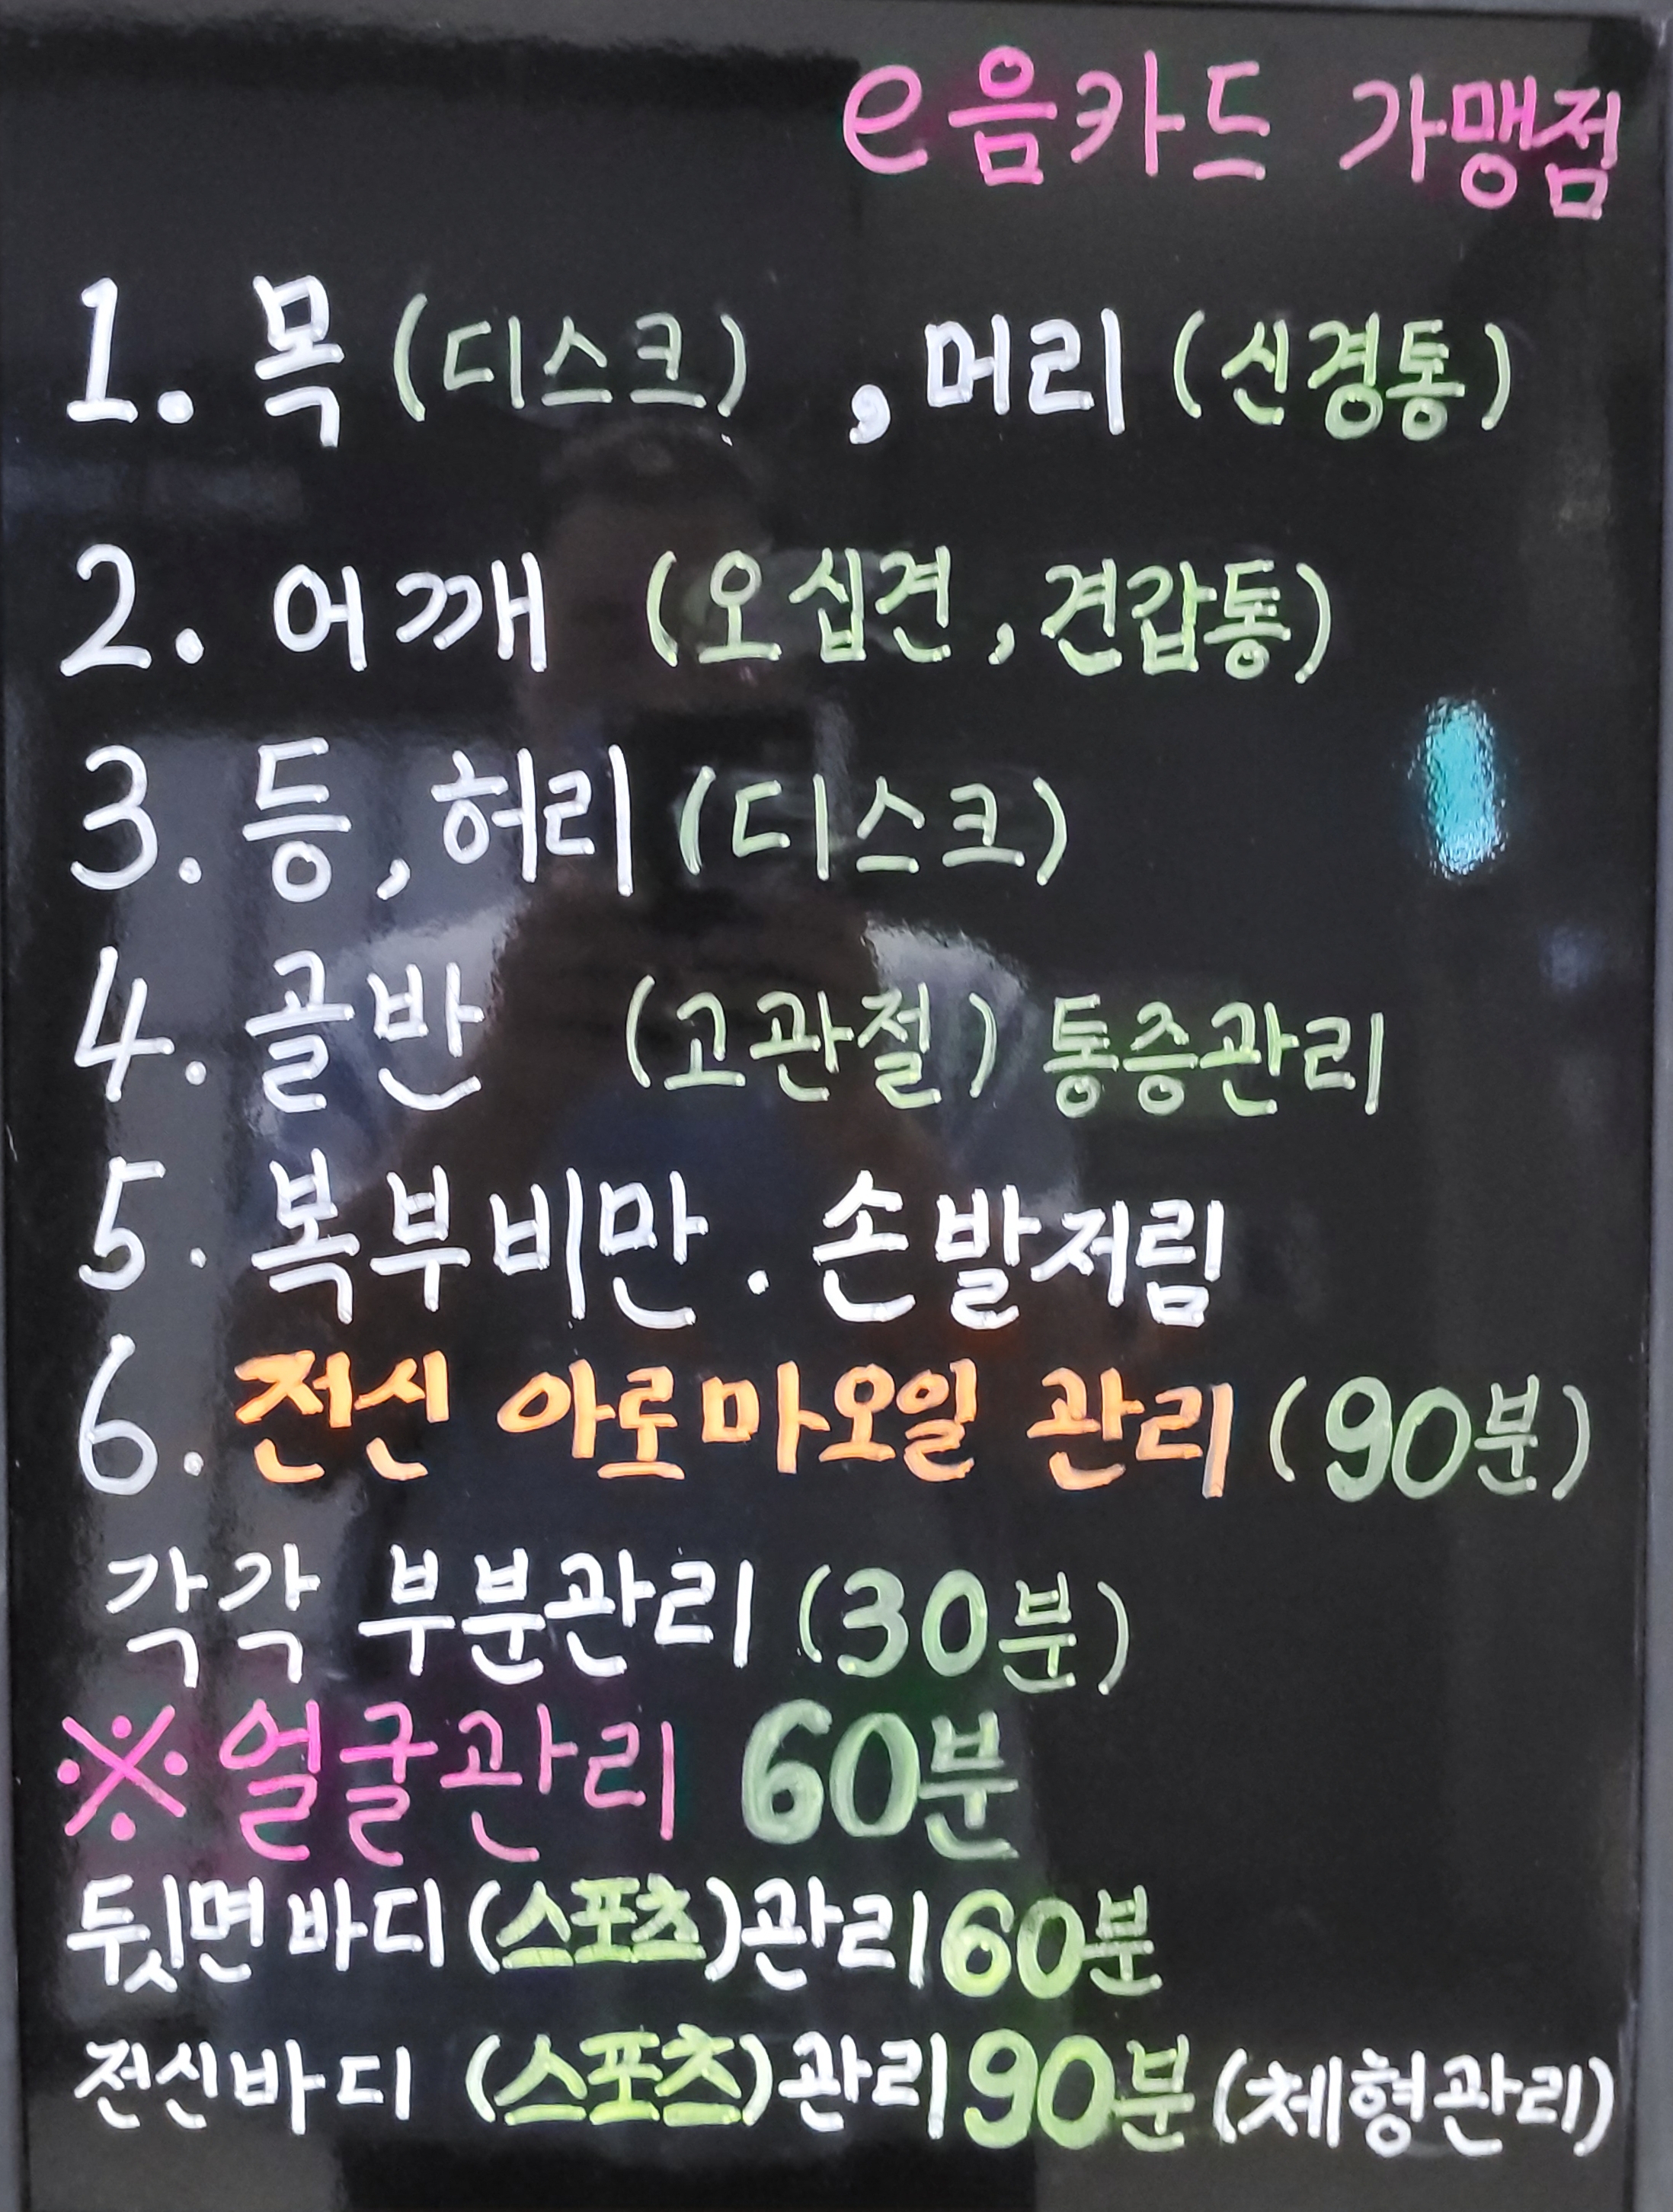 e음카드 가맹점
1. 목 (디스크) , 머리 (신경통)
2. 어깨 (오십견, 견갑통)
3. 등, 허리 (디스크)
4. 골반 (고관절) 통증관리
5. 복부비만 . 손발저림
6. 전신 아로마오일 관리 (90분)
각각 부분관리 (30분)
※얼굴관리 60분
뒷면바디(스포츠)관리60분
전신바디 (스포츠)관리90분(체형관리)